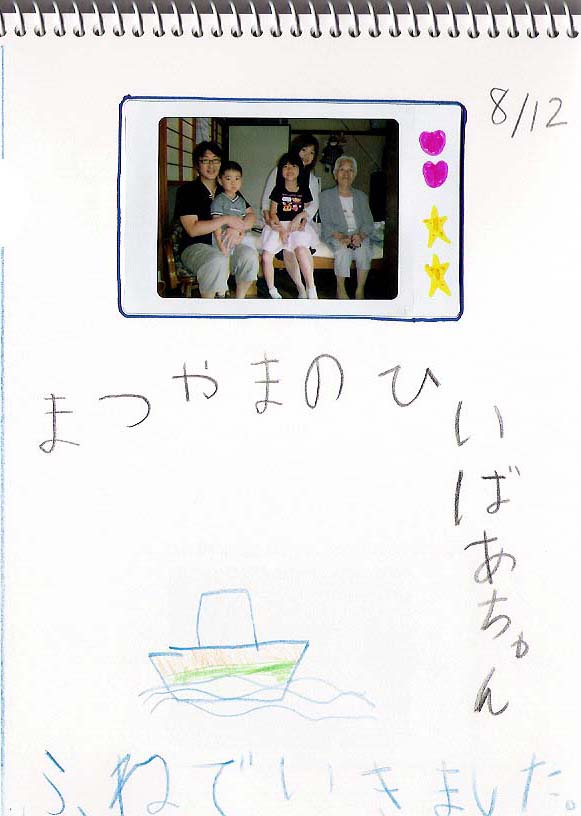 8/12
まつやまのひいばあちゃん
ふねでいきました。